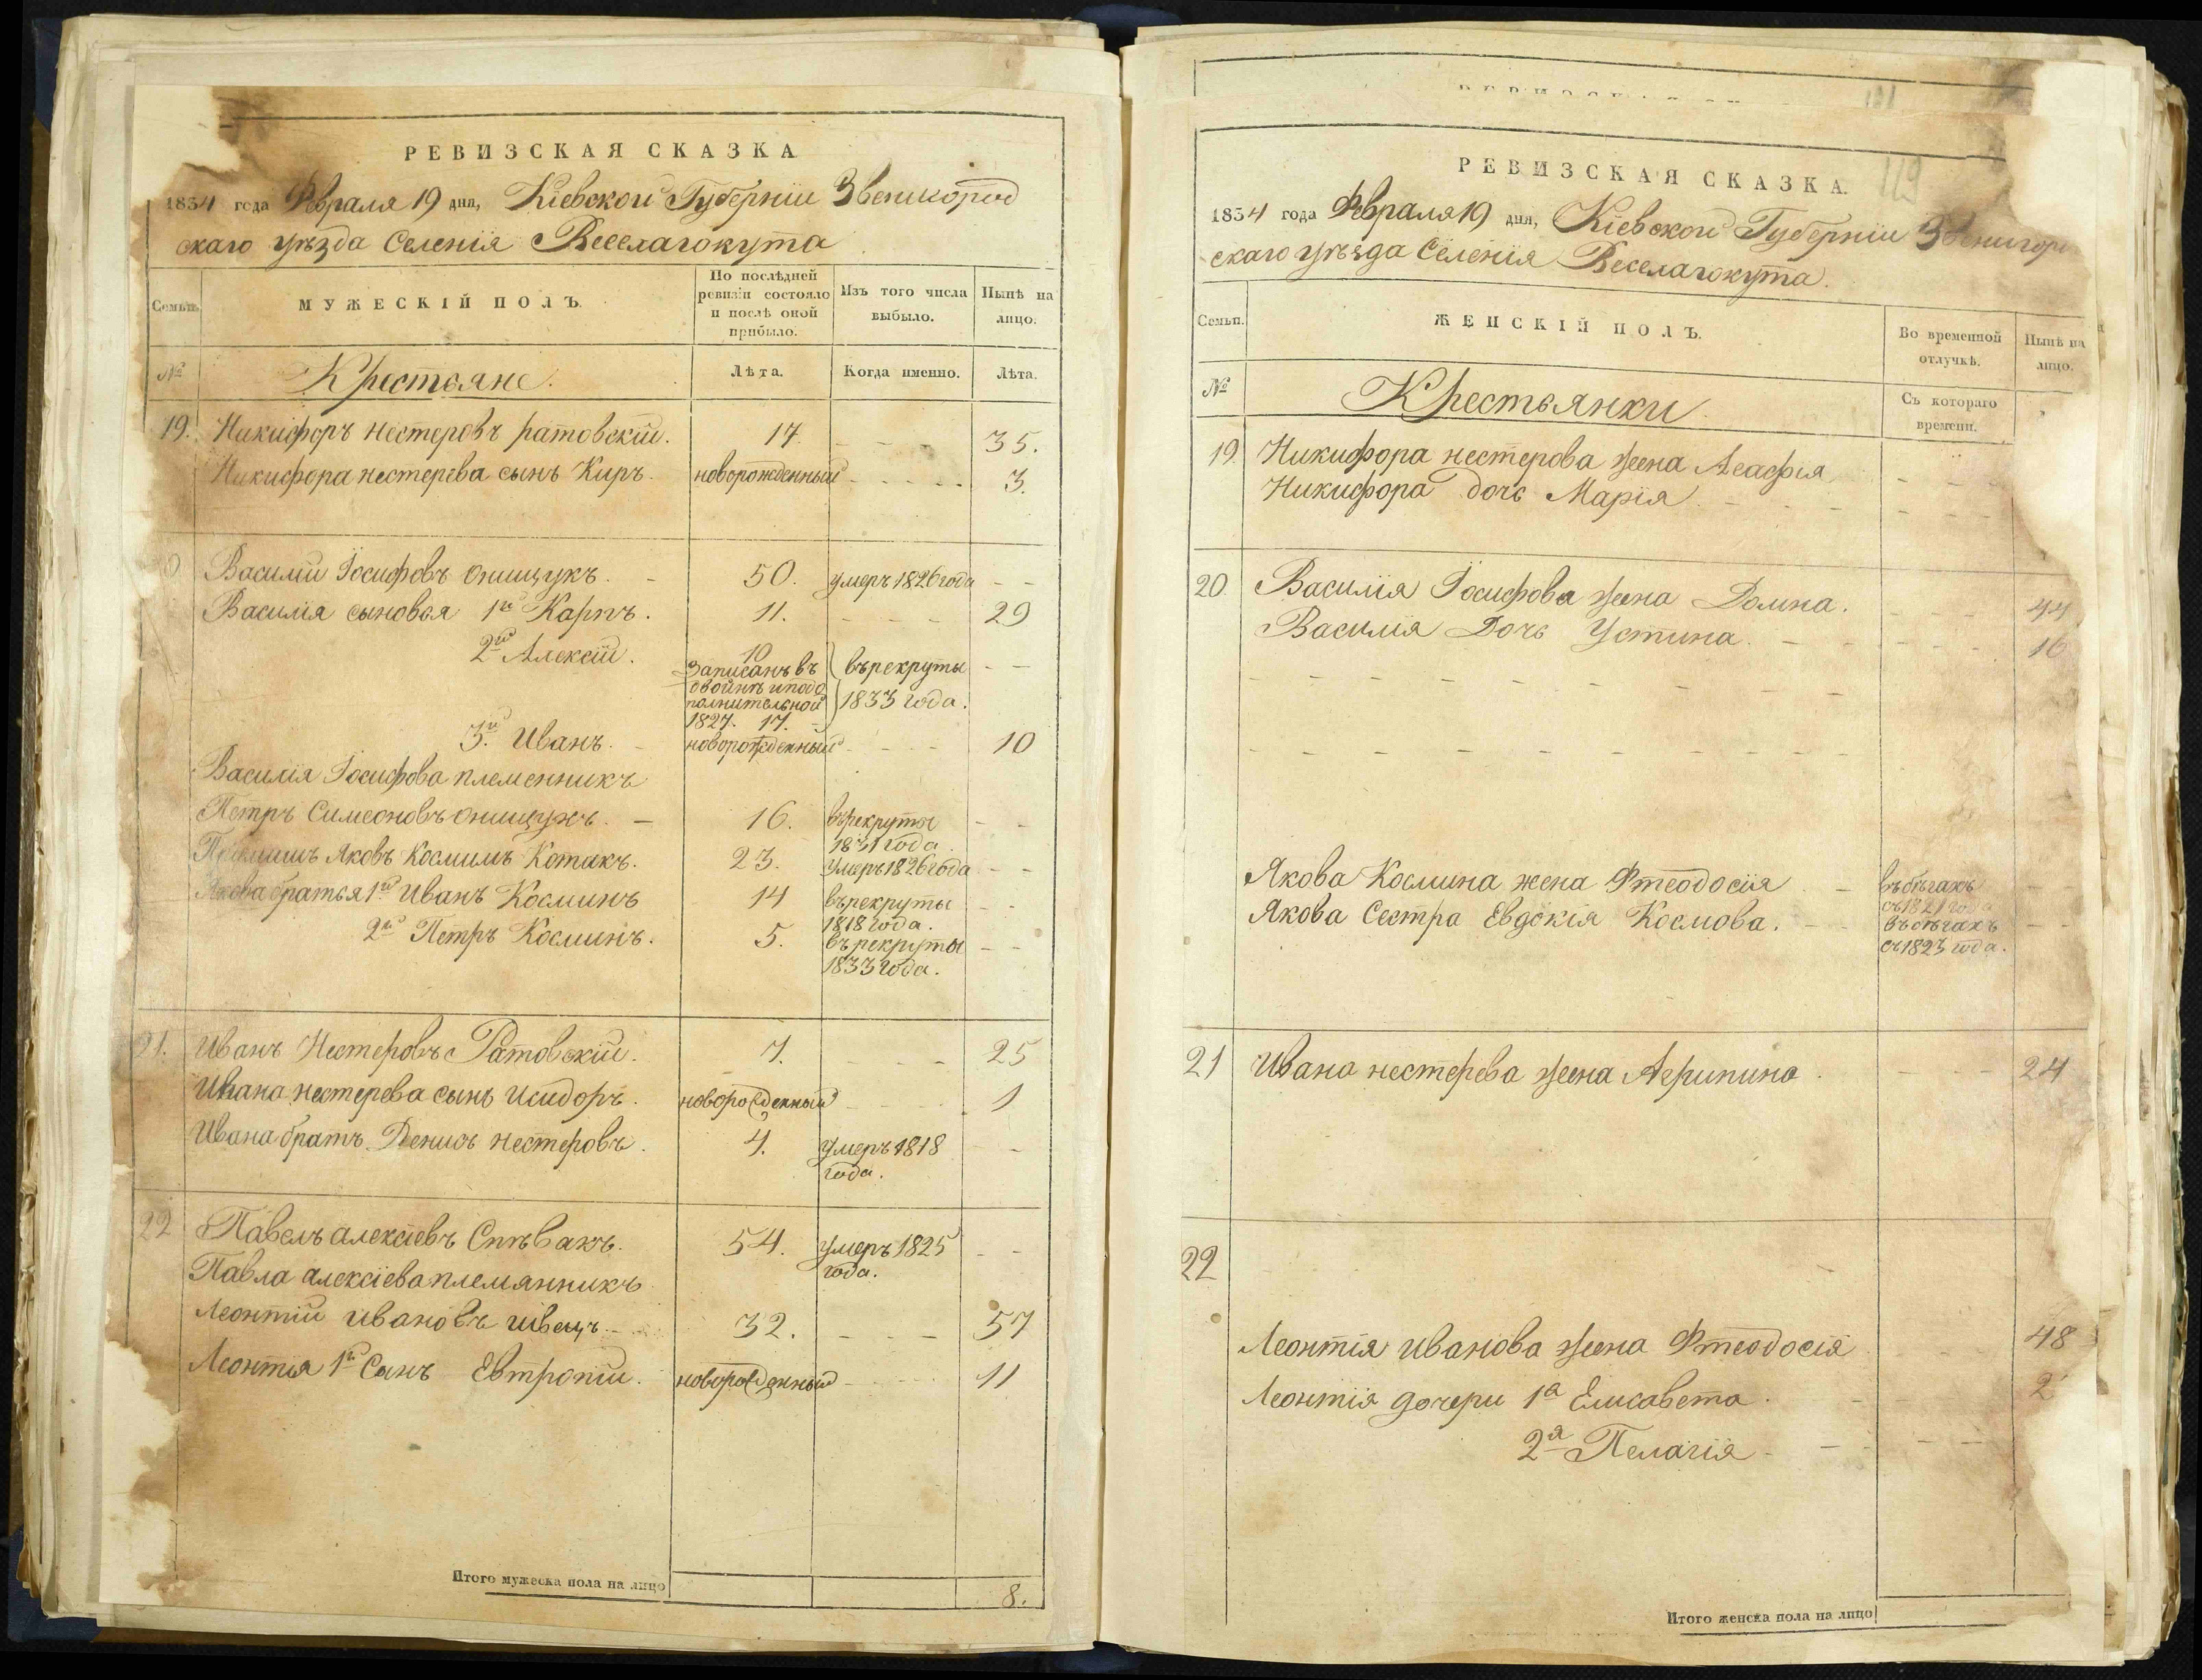 РЕВИЗСКАЯ СКАЗКА
1834 года Февраля 19 дня, Кіевской Губерніи Звенигород
скаго уѣзда Селенія Веселагокута
Семьи.
МУЖЕСКІЙ ПОЛЪ.
По послѣдней ревизіи состояло и послѣ оной прибыло.
Изъ того числа выбыло.
Нынѣ на лицо.
№ Крестьяне. Лѣта. Когда именно. Лѣта.
19. Никифоръ нестеровъ ратовскій. 17. - - - 35.
Никифора нестерева сынъ Киръ. новорожденный - - - - 3.
Василій Іосифовъ онищукъ. - 50. умеръ 1826 года - -
Василія сыновья 1й Карпъ. 11. - - - 29
2й Алексій. 10 - -
записанъ въ
двойнѣ и подо
полнительной
1827. 17.
въ рекруты
1833 года.
3й Иванъ. - новорожденный - - - 10
Василія Іосифова племенникъ
Петръ Симеоновъ онищукъ. - 16. въ рекруты - -
1831 года.
Яковъ Косминъ Котакъ. 23. умеръ 1826 года - -
Якова братья 1й Иванъ Косминъ 14 въ рекруты - -
1818 года.
2й Петръ Косминъ. 5. въ рекруты - -
1833 года.
21. Иванъ Нестеровъ Ратовскій. 7. - - - 25
Ивана нестерева сынъ Исидоръ. новорожденный - - - 1
Ивана братъ Денисъ нестеровъ. 4. умеръ 1818 - -
года.
22 Павелъ алексіевъ Спѣвакъ. 54. умеръ 1825 - -
года.
Павла алексіева племянникъ
Леонтій ивановъ швецъ - 32. - - - 57
Леонтія 1й Сынъ Евтропій. новорожденный - - - 11
Итого мужеска пола на лицо 8.
РЕВИЗСКАЯ СКАЗКА.
119
1834 года Февраля 19 дня, Кіевской Губерніи Звенигоро
скаго уѣзда Селенія Веселагокута.
Семьи.
ЖЕНСКІЙ ПОЛЪ.
Во временной отлучкѣ.
Нынѣ на лицо.
№ Крестьянки. Съ котораго времени.
19. Никифора нестерова жена Агафія - - -
Никифора дочь Марія. - - - -
20. Василія Іосифова жена Домна. - - - 44
Василія Дочь Устина. - - - - 16
Якова Космина жена Фтеодосія - въ бѣгахъ - -
съ 1821 года
Якова Сестра Евдокія Космова. - въ бѣгахъ - -
съ 1823 года.
21 Ивана нестерева жена Агрипина. - - - 24
22
Леонтія иванова жена Фтеодосія - - - 48
Леонтія дочери 1я Елисавета. - - 2
2я Пелагія - - - -
Итого женска пола на лицо